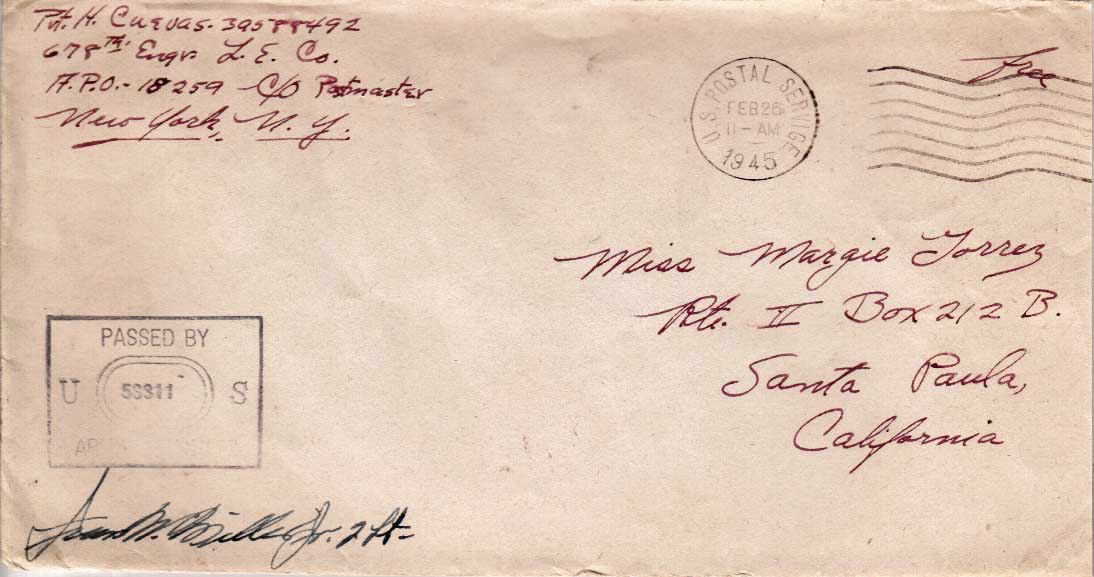 Pvt. H. Cuevas. 39588492
678th Engr. L. E. Co.
A.P.O.- 18259 C/O Postmaster
New York, N. Y.
U.S. POSTAL SERVICE
FEB 26
11-AM
1945
Free
Miss Margie Torrez
Rte. II Box 212 B.
Santa Paula,
California
PASSED BY
U S
Jr. 2 Lt.